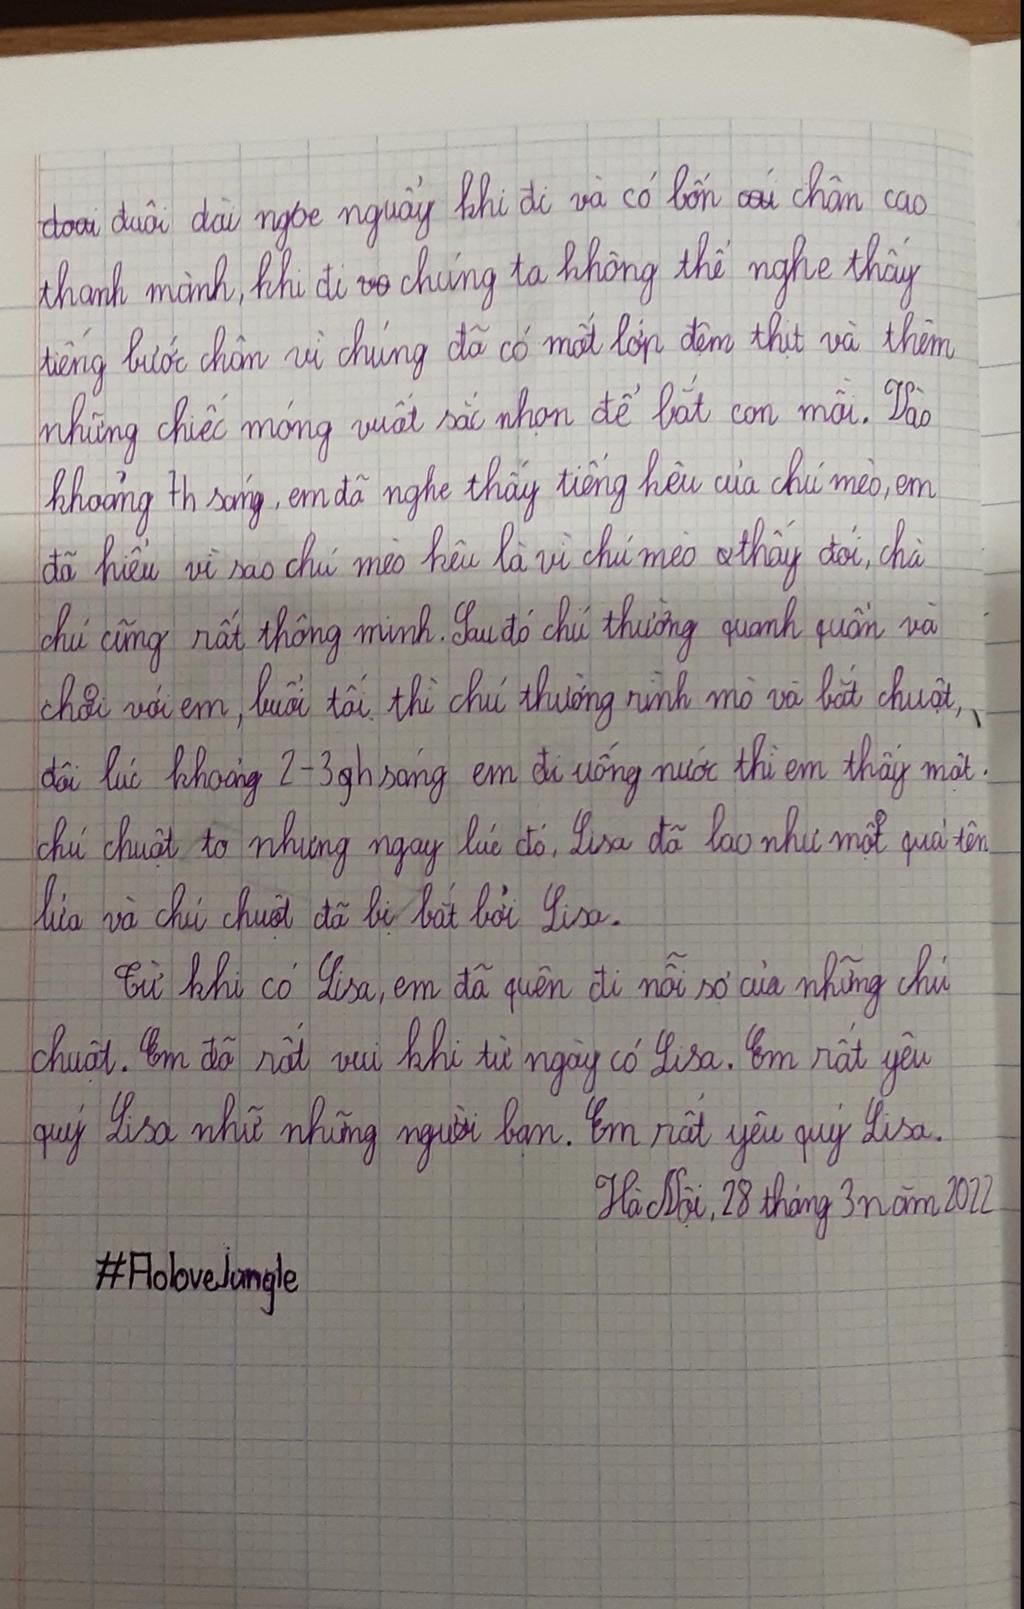 đuôi dài ngoe nguẩy khi đi và có bốn chân cao
thanh mảnh, khi đi chúng ta không thể nghe thấy
tiếng bước chân vì chúng đã có một lớp đệm thịt và thêm
những chiếc móng vuốt sắc nhọn để bắt con mồi. Vào
khoảng 7h sáng, em đã nghe thấy tiếng kêu của chú mèo, em
đã hiểu vì sao chú mèo kêu là vì chú mèo thấy đói, chà
chú cũng rất thông minh. Sau đó chú thường quanh quẩn và
chơi với em, buổi tối thì chú thường rình mò và bắt chuột,
đôi lúc khoảng 2-3h sáng em đi uống nước thì em thấy một
chú chuột to nhưng ngay lúc đó, Lisa đã lao như một quả tên
lửa và chú chuột đã bị bắt bởi Lisa.
Từ khi có Lisa, em đã quên đi nỗi sợ của những chú
chuột. Em đã rất vui khi từ ngày có Lisa. Em rất yêu
quý Lisa như những người bạn. Em rất yêu quý Lisa.
Hà Nội, 28 tháng 3 năm 2022
#AoloveJungle